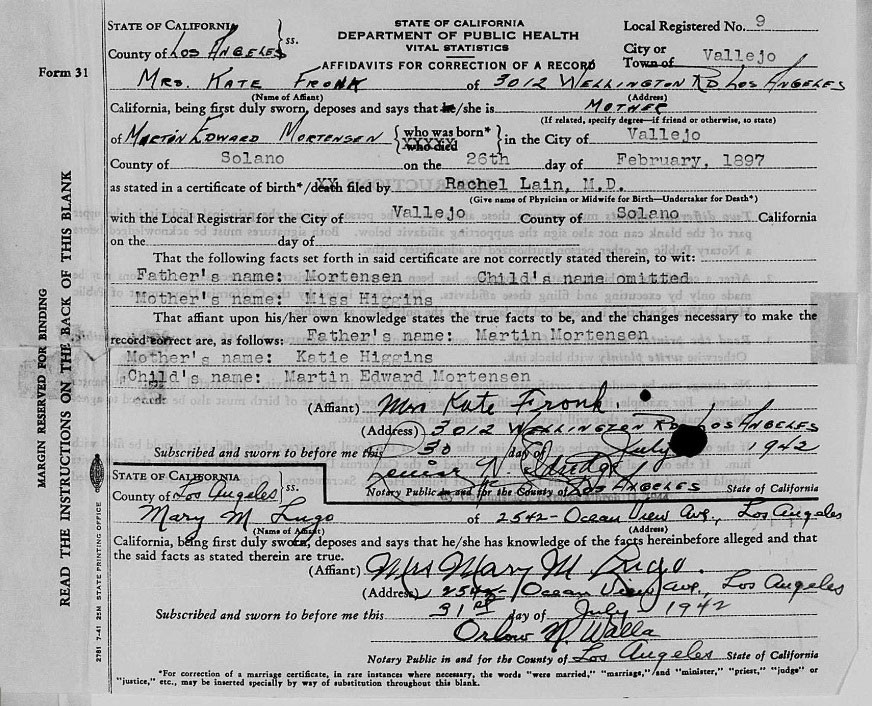 STATE OF CALIFORNIA
County of Los Angeles } ss.
STATE OF CALIFORNIA
DEPARTMENT OF PUBLIC HEALTH
VITAL STATISTICS
Local Registered No. 9
City or
Town of Vallejo
Form 31
AFFIDAVITS FOR CORRECTION OF A RECORD
Mrs. Kate Fronk of 3012 Wellington Rd Los Angeles
(Name of Affiant) (Address)
California, being first duly sworn, deposes and says that he/she is Mother
(If related, specify degree—if friend or otherwise, so state)
of Martin Edward Mortensen { who was born* XXXXX who died } in the City of Vallejo
County of Solano on the 26th day of February, 1897
as stated in a certificate of birth*/death filed by Rachel Lain, M.D.
(Give name of Physician or Midwife for Birth—Undertaker for Death*)
with the Local Registrar for the City of Vallejo County of Solano California
on the day of
That the following facts set forth in said certificate are not correctly stated therein, to wit:
Father's name: Mortensen Child's name omitted
Mother's name: Miss Higgins
That affiant upon his/her own knowledge states the true facts to be, and the changes necessary to make the
record correct are, as follows: Father's name: Martin Mortensen
Mother's name: Katie Higgins
Child's name: Martin Edward Mortensen
(Affiant) Mrs Kate Fronk
(Address) 3012 Wellington Rd Los Angeles
Subscribed and sworn to before me this 30 day of July 1942
N. Eldridge
Notary Public in and for the County of Los Angeles State of California
STATE OF CALIFORNIA
County of Los Angeles } ss.
Mary M Lugo of 2542- Ocean View Ave., Los Angeles
(Name of Affiant) (Address)
California, being first duly sworn, deposes and says that he/she has knowledge of the facts hereinbefore alleged and that
the said facts as stated therein are true.
(Affiant) Mrs Mary M Lugo.
(Address) 2542- Ocean View Ave., Los Angeles
Subscribed and sworn to before me this 31st day of July 1942
Orlow N. Walla
Notary Public in and for the County of Los Angeles State of California
*For correction of a marriage certificate, in rare instances where necessary, the words "were married," "marriage," and "minister," "priest," "judge" or
"justice," etc., may be inserted specially by way of substitution throughout this blank.
MARGIN RESERVED FOR BINDING
READ THE INSTRUCTIONS ON THE BACK OF THIS BLANK
2781 7-41 25M STATE PRINTING OFFICE